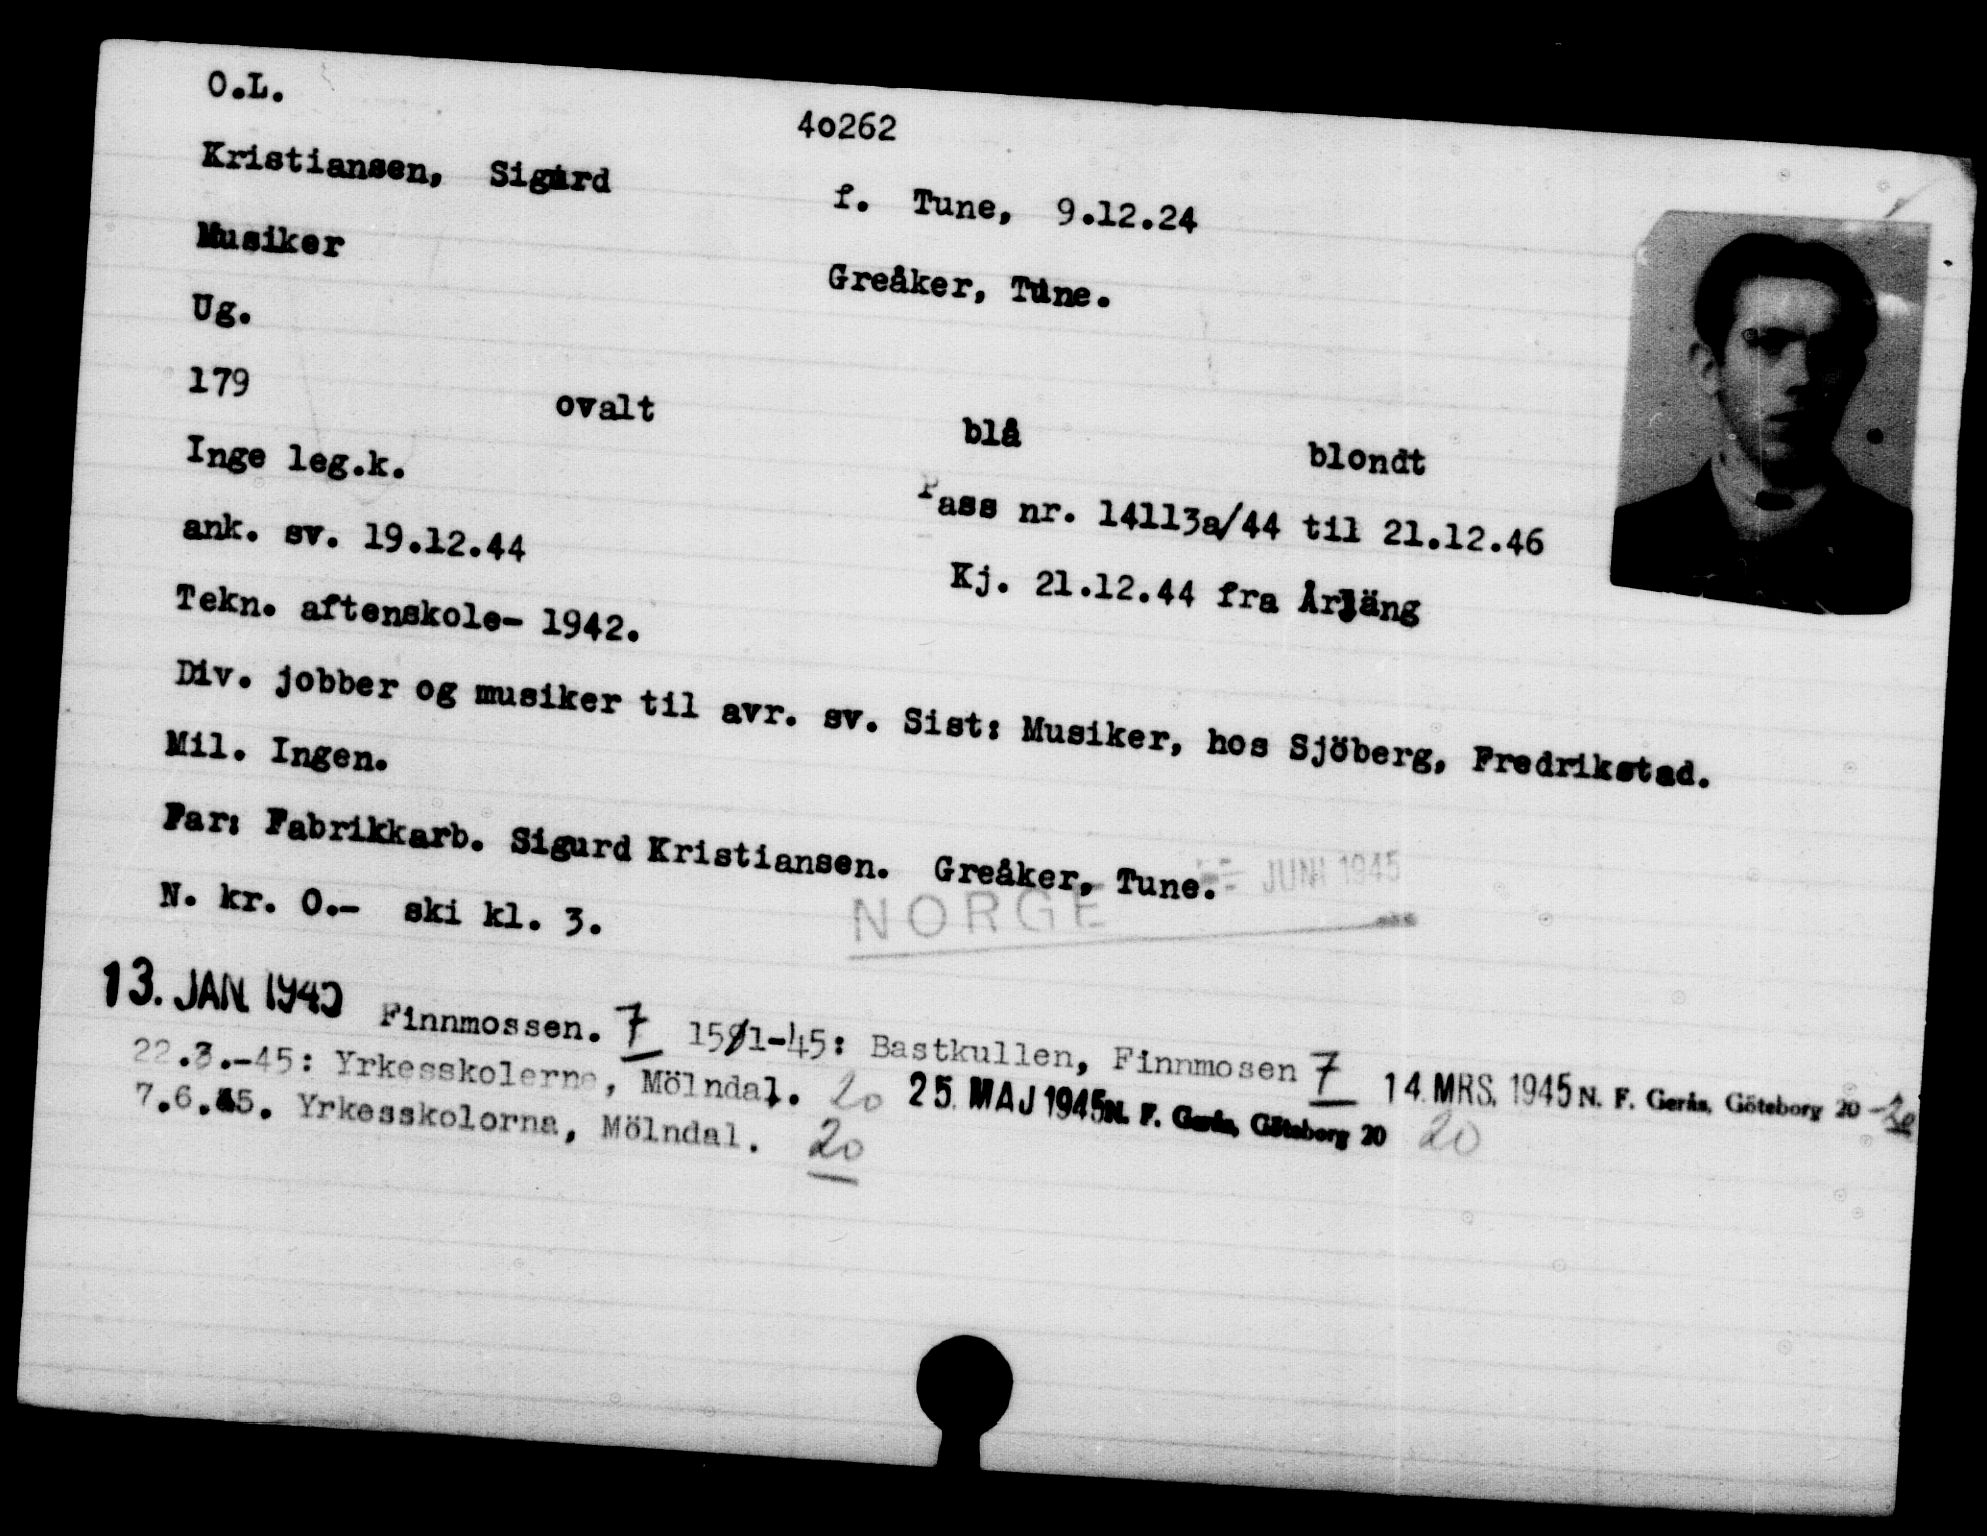 O.L.
40262
Kristiansen, Sigurd
f. Tune, 9.12.24
Musiker
Greåker, Tune.
Ug.
179 ovalt blå blondt
Inge leg.k.
Pass nr. 14113a/44 til 21.12.46
ank. sv. 19.12.44
Kj. 21.12.44 fra Årjäng
Tekn. aftenskole- 1942.
Div. jobber og musiker til avr. sv. Sist: Musiker, hos Sjöberg, Fredrikstad.
Mil. Ingen.
Far: Fabrikkarb. Sigurd Kristiansen. Greåker, Tune.
JUNI 1945
N. kr. 0.- ski kl. 3.
NORGE
13. JAN. 1945 Finnmossen. 7 15/1-45: Bastkullen, Finnmosen 7 14. MRS. 1945 N. F. Gerås, Göteborg 20 20
22.3.-45: Yrkesskolerna, Mölndal. 20 25. MAJ 1945 N. F. Gerås, Göteborg 20 20
7.6.45. Yrkesskolorna, Mölndal. 20